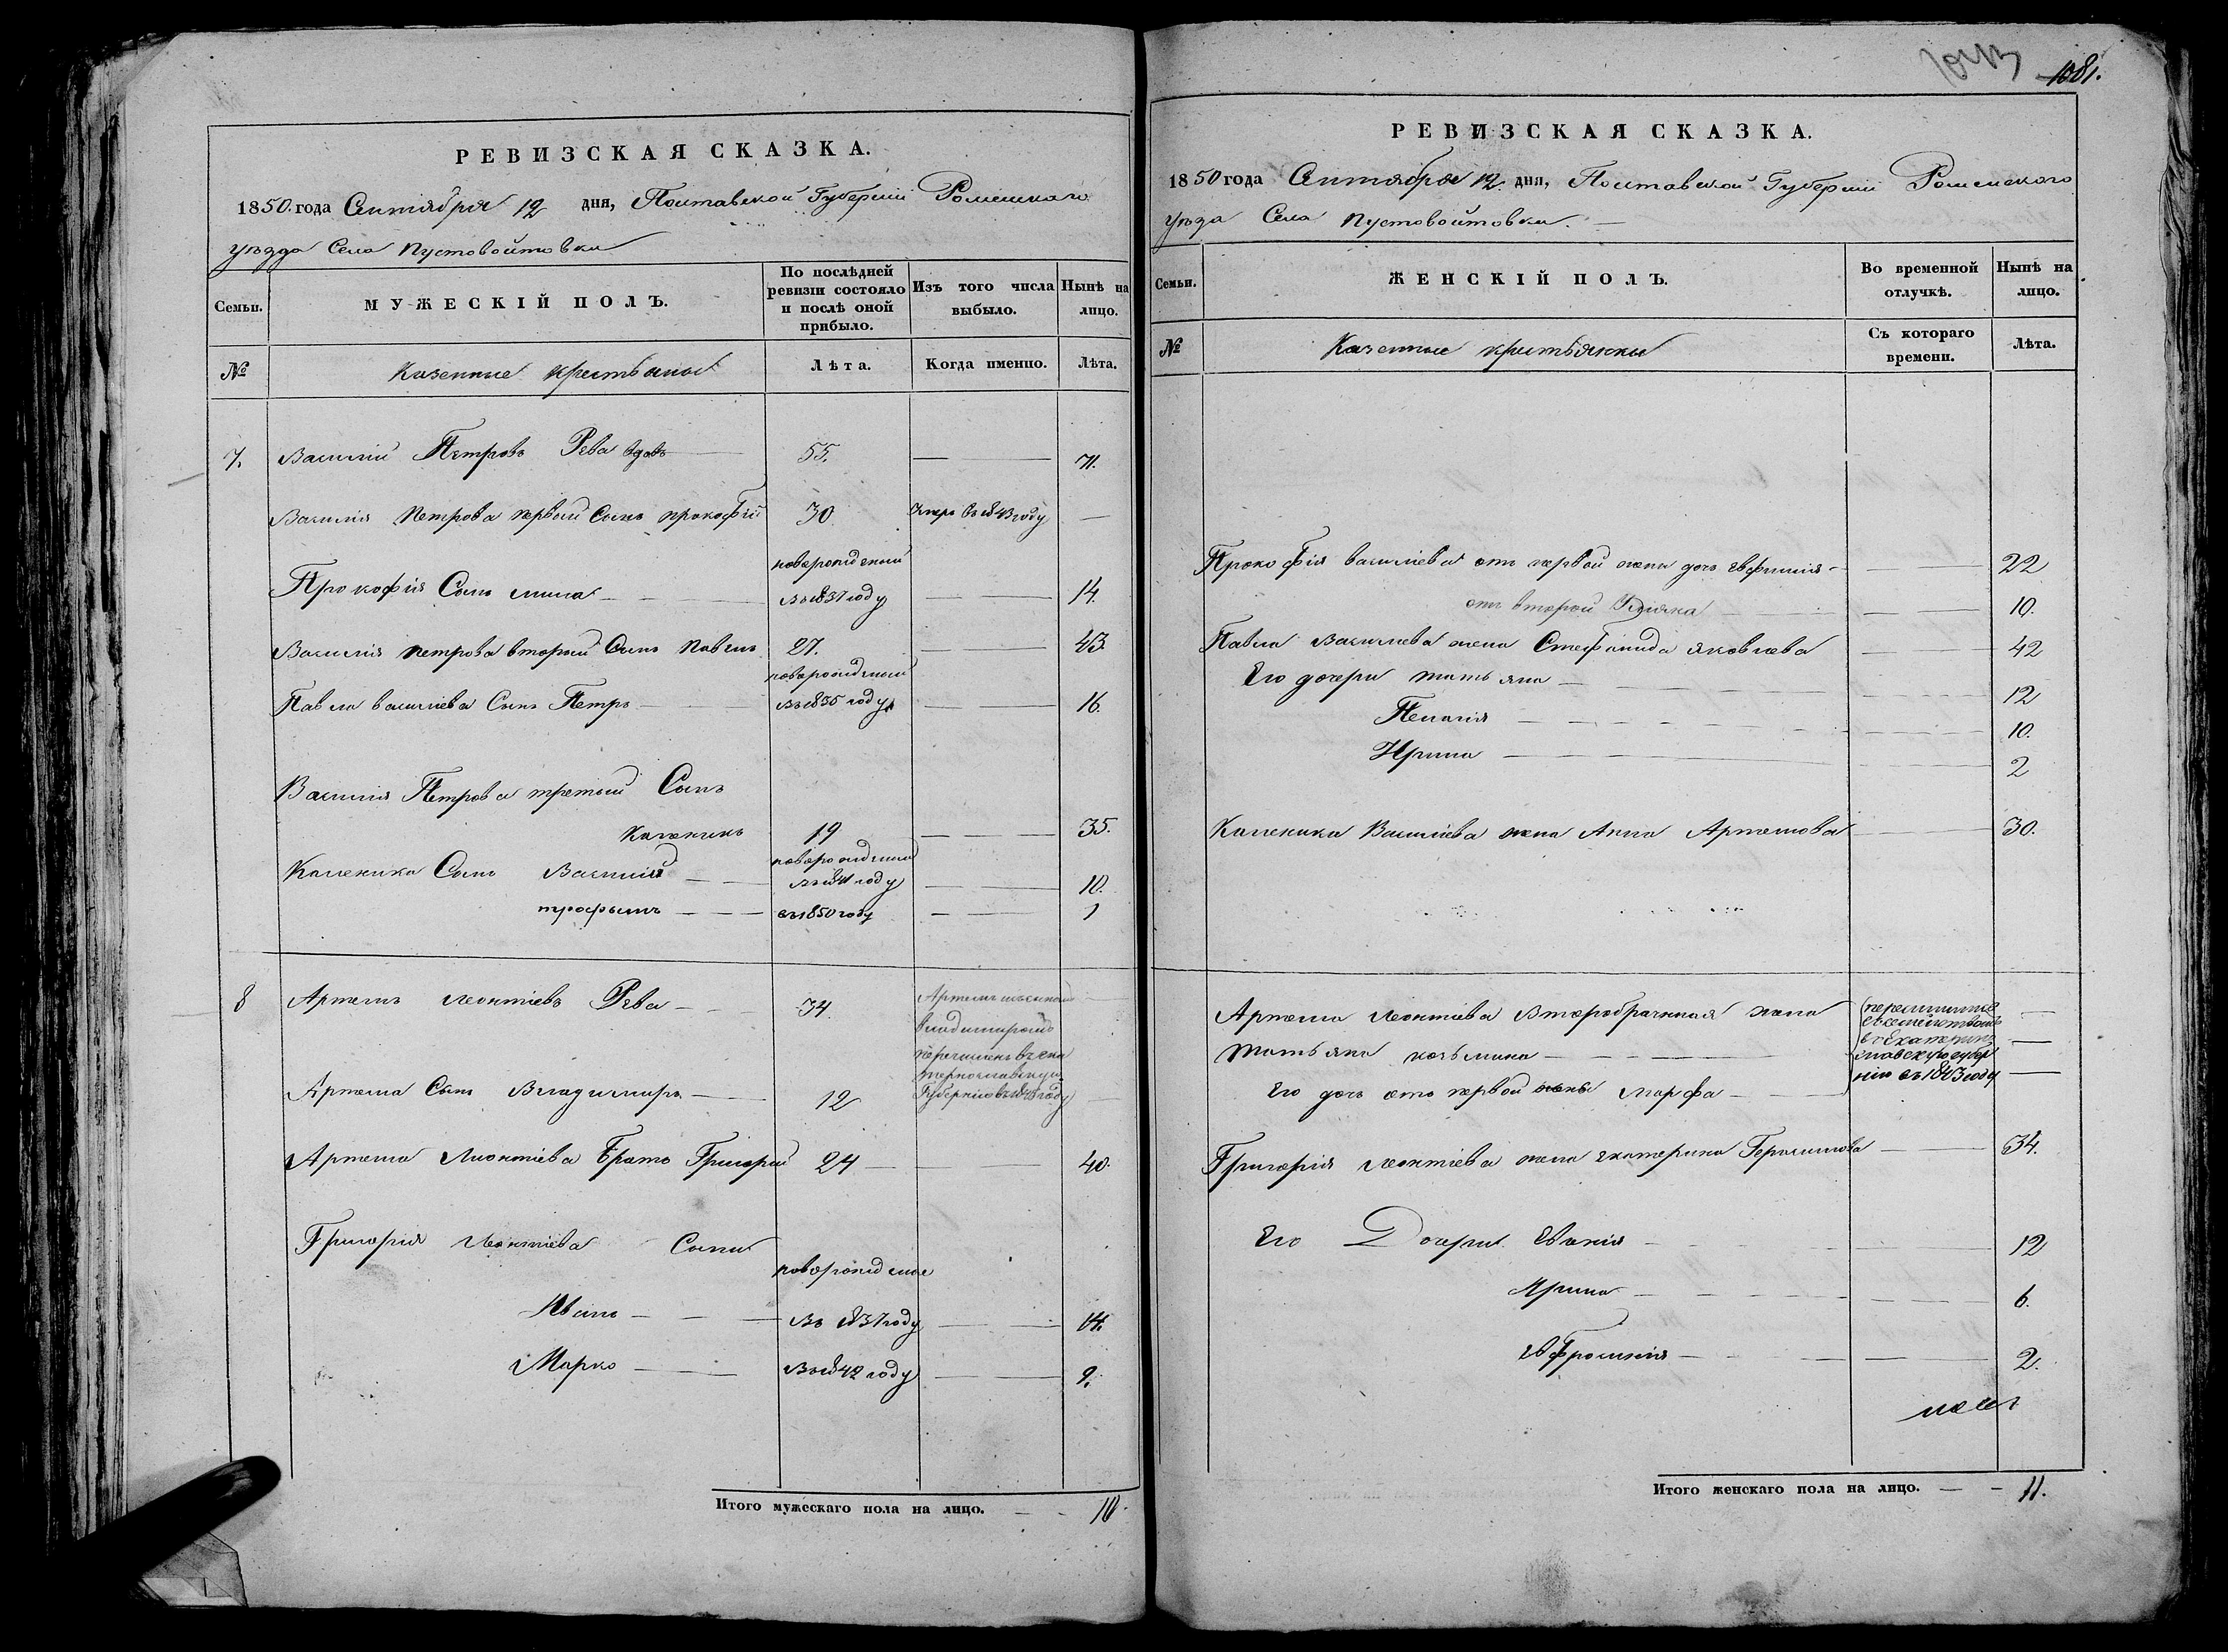 РЕВИЗСКАЯ СКАЗКА.
1850 года Сентября 12 дня, Полтавской Губернiи Роменскаго
уѣзда Села Пустовойтовки
Семьи.
МУЖЕСКIЙ ПОЛЪ.
По послѣдней ревизiи состояло и послѣ оной прибыло.
Изъ того числа выбыло.
Нынѣ на лицо.
№
Казенные крестьяне
Лѣта.
Когда именно.
Лѣта.
7. Василий Петровъ Рева вдовъ 55. 71.
Василия Петрова первый Сынъ прокофiй 30 умре въ 1843 году
новорожденый
Прокофiя Сынъ мина въ 1837 году 14.
Василия петрова вторый Сынъ павелъ 27. 43.
новорожденый
Павла василiева Сынъ Петръ въ 1835 году 16.
Василия Петрова третый Сынъ
Каленикъ 19 35.
новорожденые
Каленика Сынъ Василий въ 1841 году 10.
трофымъ въ 1850 году 1
8 Артемъ Леонтiевъ Рева 34. Артемъ съсыномъ
владимиромъ
перечисленъ въ ека
теринославскую
Артема Сынъ Владимиръ 12 Губернiю въ 1843 году
Артема Лионтiева Братъ Григорий 24 40.
Григория Леонтiева Сыны
новорожденые
Иванъ въ 1837 году 14.
Марко въ 1842 году 9.
Итого мужескаго пола на лицо. 10.
1081.
РЕВИЗСКАЯ СКАЗКА.
1850 года Сентября 12 дня, Полтавской Губернiи Роменскаго
уѣзда Села Пустовойтовки.
Семьи.
ЖЕНСКIЙ ПОЛЪ.
Во временной отлучкѣ.
Нынѣ на лицо.
№
Казенные крестьянки
Съ котораго времени.
Лѣта.
Прокофiя василiева отъ первой жены дочь евфимия 22
отъ второй 10.
Павла Василиева жена Стефанида яковлева 42
Его дочери татьяна 12
Пелагия 10.
Ирина 2
Каленика Василiева жена Анна Артемова 30.
Артема Леонтiева Второбрачная жена
татьяна козьмина
перечислены
съ семействомъ
въ Екатерин
славскую губер
нiю въ 1843 году
Его дочь отъ первой жены марфа
Григория Леонтiева жена екатерина Герасимова 34.
Его Дочери Евгения 12
Ирина 6.
евфросиния 2.
Итого женскаго пола на лицо. 11.